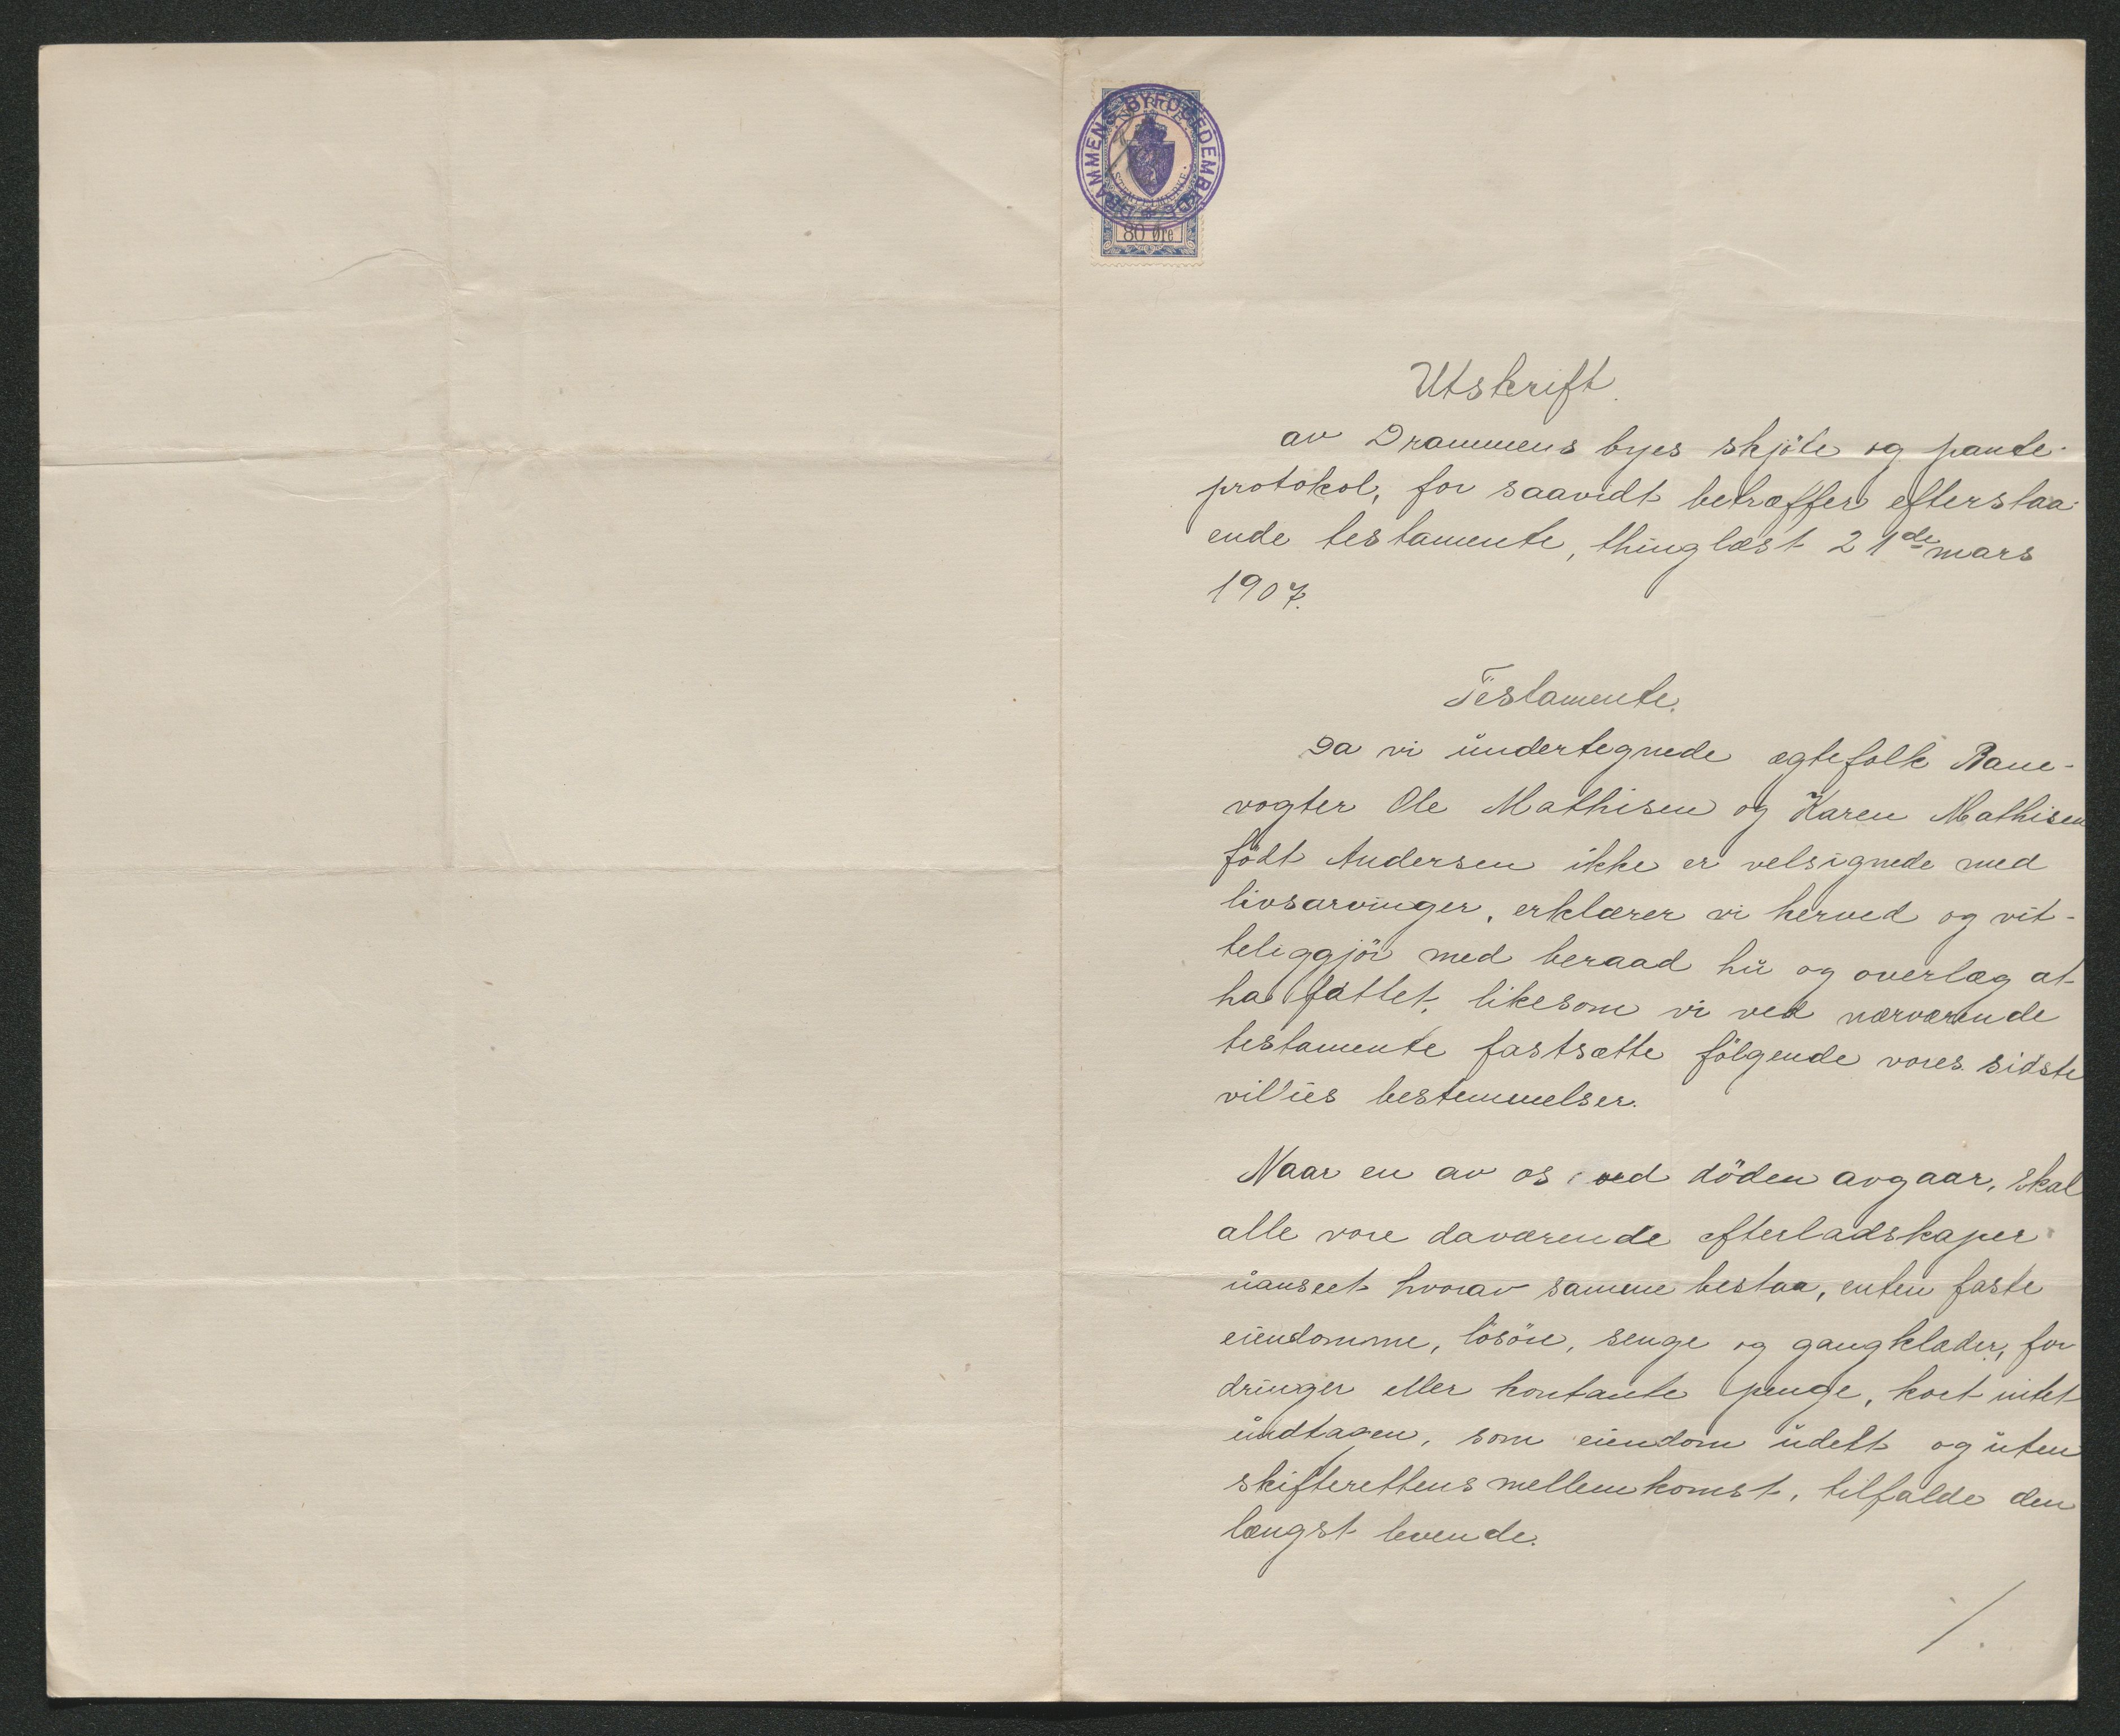 DRAMMENS BYFOGEDEMBEDE
NORGE
STEMPELMERKE
80 Øre
Utskrift.
av Drammens byes skjöte og pante-
protokol, for saavidt betræffer efterstaa-
ende testamente, thinglæst 21de mars
1907.
Testamente.
Da vi undertegnede egtefolk Bane-
vogter Ole Mathisen og Karen Mathisen
född Andersen ikke er velsignede med
livsarvinger, erklærer vi herved og vit-
teliggjör med beraad hu og overlæg at
ha fattet, likesom vi ved nærværende
testamente fastsætte fölgende vores sidste
villies bestemmelser.
Naar en av os ved döden avgaar, skal
alle vore daværende efterladskaper
uanseet hvorav samme bestaa, enten faste
eiendomme, lösöre, senge og gangklæder, for
dringer eller kontante penge, kort intet
undtagen, som eiendom udelt og uten
skifterettens mellemkomst, tilfalde den
længst levende.
/.